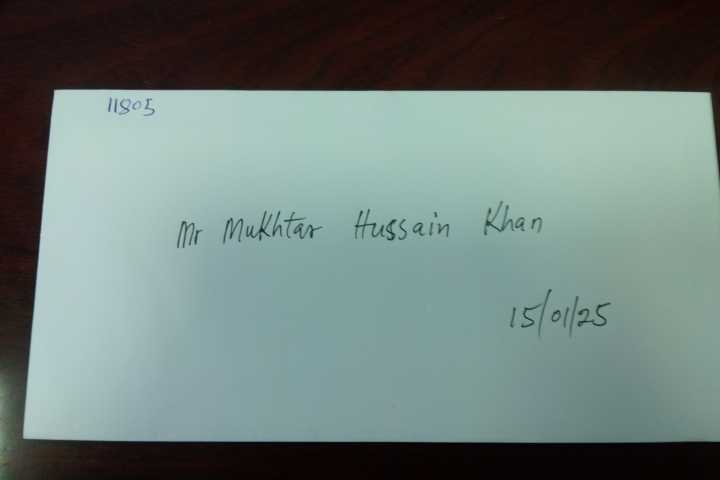 11805
Mr Mukhtar Hussain Khan
15/01/25